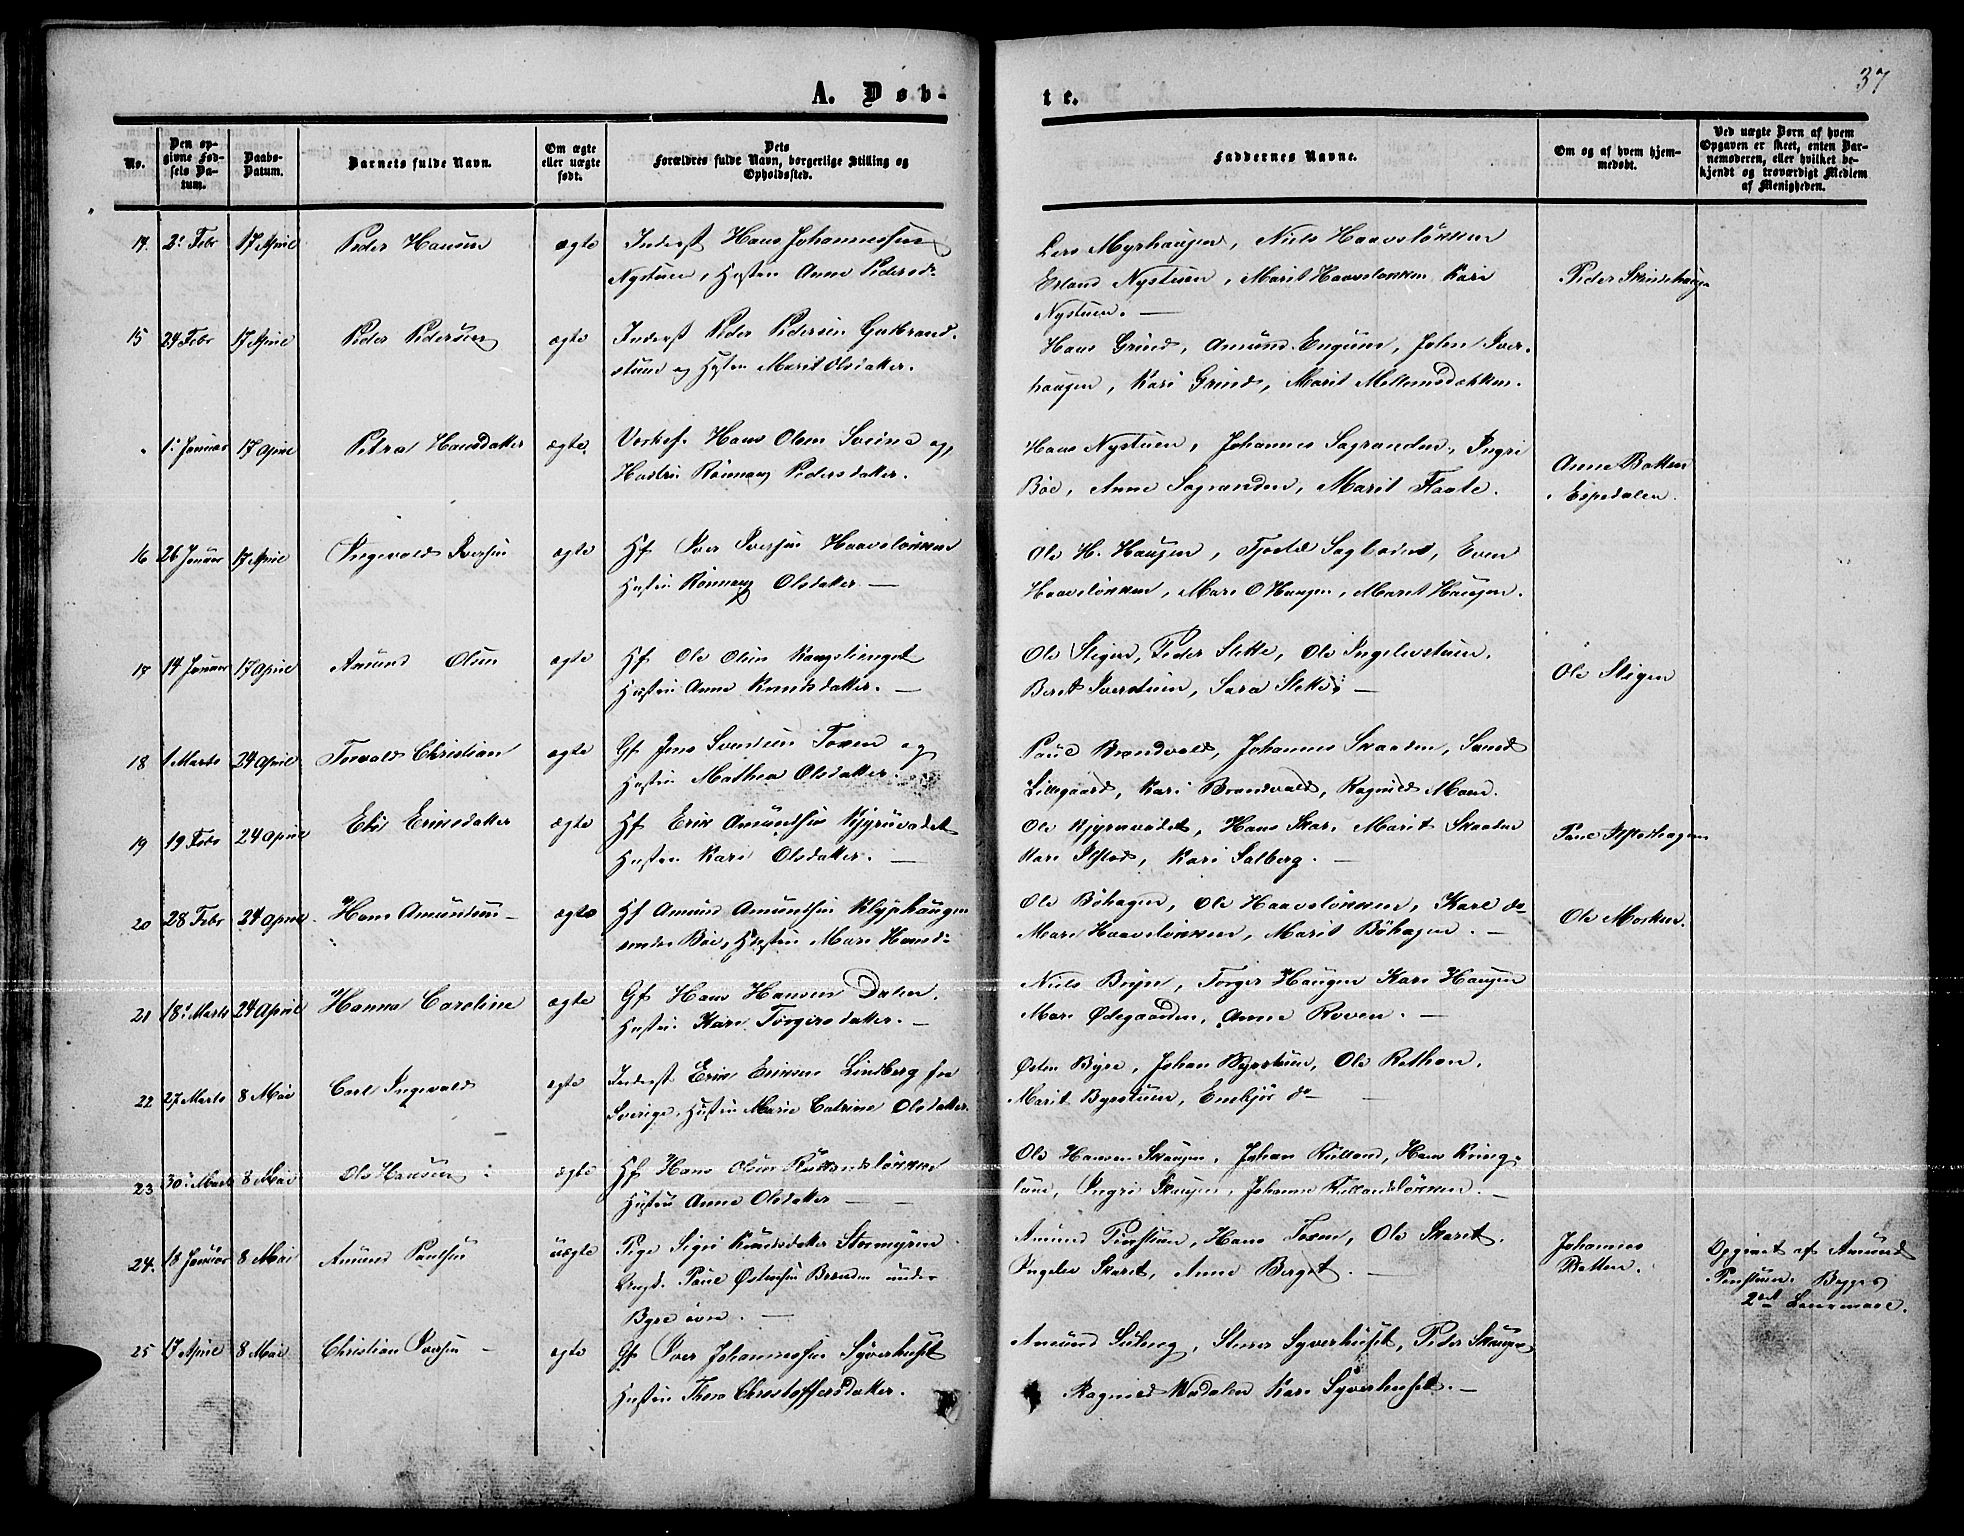 37
A. Døb-
te.
No.
Den op-
givne Fød-
sels Da-
tum.
Daabs-
Datum.
Barnets fulde Navn.
Om ægte
eller uægte
født.
Dets
Forældres fulde Navn, borgerlige Stilling og
Opholdssted.
Faddernes Navne.
Om og af hvem hjem-
medøbt.
Ved uægte Børn af hvem
Opgaven er skeet, enten Bar-
nemoderen, eller hvilket be-
kjendt og troværdigt Medlem
af Menigheden.
14. 2. Febr 17 April Peder Hansen ægte Inderst Hans Johannessen
Nystuen, Hustru Anne Pedersd.
Lars Myrhaugen, Niels Haavsløkken
Erland Nystuen, Marit Haavsløkken Kari
Nystuen. —
Peder
15 24 Febr 17 April Peder Pedersen ægte Inderst Peder Pedersen Gudbrand-
stuen og Hustru Marit Olsdatter.
Hans Grind, Amund Engum, John Iver-
haugen, Kari Grind, Marit
1. Januar 17 April Petra Hansdatter ægte. Hans Olsen og
Hustru Rønnaug Pedersdatter.
Hans Nystuen, Johannes Sagranden, Ingri
Böe, Anne Sagranden, Marit Flaate.
Anne Batten
Espedalen.
16 26 Januar 17 April Ingevald Iversen ægte Hf Iver Iversen Haavsløkken
Hustru Rønnaug Olsdatter —
Ole H. Haugen, Fjostel Sagbaden, Even
Haavsløkken, Mari O Haugen, Marit Haugen.
17 14 Januar 17 April Amund Olsen ægte Hf Ole Olsen
Hustru Anne Knudsdatter. —
Ole Stigen, Peder Slette, Ole Ingelevstuen.
Berit Iverstuen, Sara Slette. —
Ole Stigen
18 1 Marts 24 April Torvald Christian ægte Gf Jens Svendsen Toxen og
Hustru Mathea Olsdatter.
Paul Brandvold, Johannes Skaaden, Svend
Lillegaard, Kari Brandvold, Ragnild Moen.
19 19 Febr 24 April Eli Eriksdatter ægte Hf Erik Amundsen Kjyruvadet
Hustru Kari Olsdatter. —
Ole Kjyruvadet, Hans Skar, Marit Skaaden
Kari Ilstad, Kari Solberg. —
Paul
20 28 Febr 24 April. Hans Amundsen — ægte Hf Amund Amundsen Klyphaugen
under Böe, Hustru Mari Hansd.
Ole Böhagen, Ole Haavsløkken, Kari do
Mari Haavsløkken, Marit Böhagen. —
Ole Morken.
21 18. Marts 24 April Hanna Caroline ægte Gf Hans Hansen Dalen.
Hustru Kari Torgersdatter. —
Niels Bøyn, Torger Haugen Kari Haugen
Mari Ødegaarden, Anne Roven. —
22 27 Marts 8 Mai Carl Ingevald ægte Inderst Erik Eriksen Lindberg fra
Sverige, Hustru Marie Catrine Olsdatter.
Østen Byre, Johan Byrstuen, Ole Rethon.
Marit Byrstuen, Enebjør do —
23 30. Marts 8 Mai Ole Hansen ægte Hf Hans Olsen Rullandsløkken
Hustru Anne Olsdatter —
Ole Hansen Skaugen, Johan Rulland, Hans Kring-
lune, Ingri Skaugen, Johanne Rullandsløkken. —
24. 18 Januar 8 Mai Amund Paulsen uægte Pige Sigri Knudsdatter Stormyren.
Ungk. Paul Østensen Brenden under
Byre øvre. —
Amund Tinstuen, Hans Toxen, Ole Skaret.
Ingelev Skaret, Anne Berget. —
Johannes
Batten.
Opgivet af Amund
Tinstuen. Begges
2det Leiermaal.
25 17 April 8 Mai Christian Iversen — ægte Gf Iver Johannessen Syverhuset
Hustru Thora Christoffersdatter.
Amund Suberg, Stener Syverhuset, Peder Skaugen
Ragnild Nordalen Kari Syverhuset. —